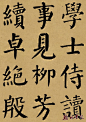 學士侍讀
事見柳芳
續卓絕殷